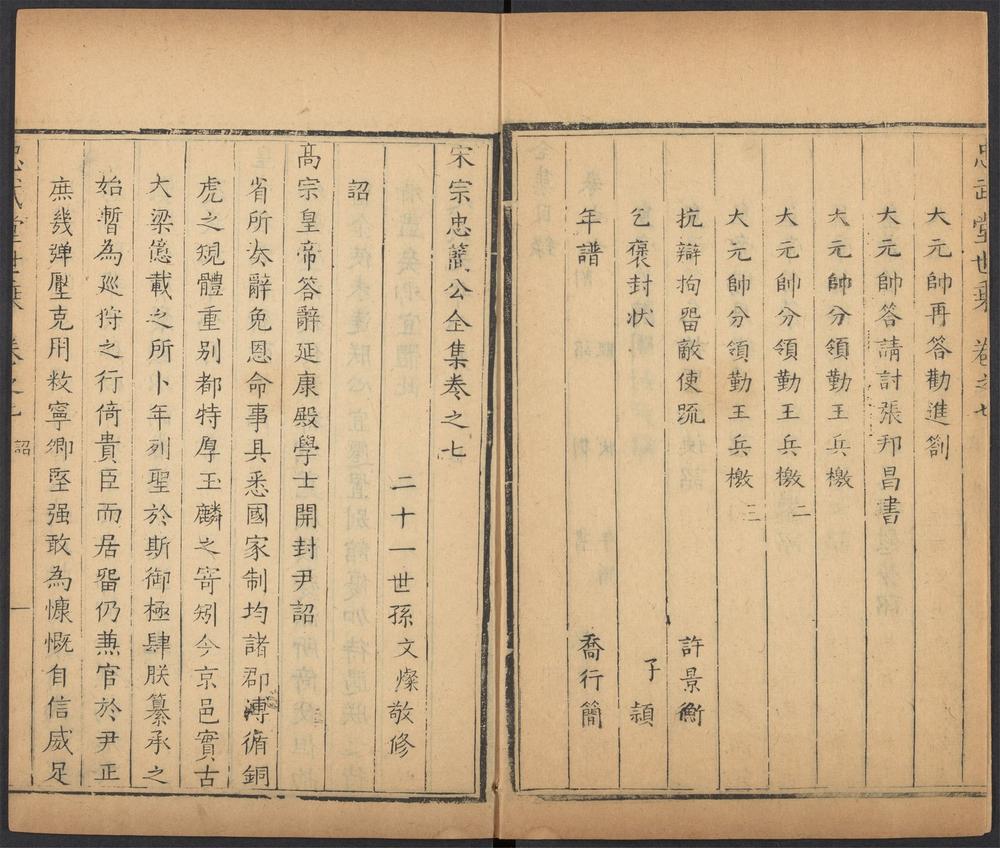 忠武堂世乘 卷之七
大元帥再答勸進劄
大元帥答請討張邦昌書
大元帥分領勤王兵檄
大元帥分領勤王兵檄 二
大元帥分領勤王兵檄 三
抗辯拘畱敵使疏 許景衡
乞褒封状 子頴
年譜 喬行簡
宋宗忠蕳公全集卷之七
二十一世孫文燦敬修
詔
高宗皇帝答辭延康殿學士開封尹詔
省所奏辭免恩命事具悉國家制均諸郡溥循銅
虎之規體重别都特厚玉麟之寄矧今京邑實古
大梁億載之所卜年列聖於斯御極肆朕纂承之
始暫為廵狩之行倚貴臣而居畱仍兼官於尹正
庶幾彈壓克用敉寧卿堅强敢為慷慨自信威足
忠武堂世乘 卷之七 詔 一